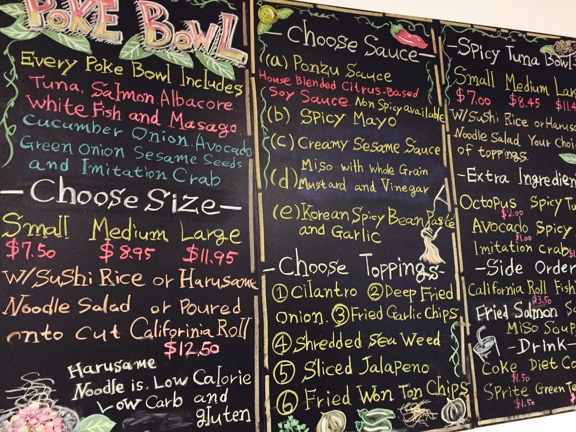 POKE BOWL
Every Poke Bowl Includes
Tuna, Salmon, Albacore
White Fish and Masago.
Cucumber Onion Avocado
Green Onion Sesame Seeds
and Imitation Crab
-Choose Size-
Small Medium Large
$7.50 $8.95 $11.95
w/Sushi Rice or Harusame
Noodle Salad or Poured
onto Cut Califorinia Roll
$12.50
Harusame
Noodle is Low Calorie
Low Carb and
gluten
-Choose Sauce-
(a) Ponzu Sauce
House Blended Citrus-Based
Soy Sauce Non Spicy available
(b) Spicy Mayo
(c) Creamy Sesame Sauce
(d) Miso with whole Grain
Mustard and Vinegar
(e) Korean Spicy Bean Paste
and Garlic
-Choose Toppings-
① Cilantro ② Deep Fried
onion. ③ Fried Garlic Chips
④ Shredded Sea Weed
⑤ Sliced Jalapeno
⑥ Fried Won Ton Chips
-Spicy Tuna Bowl
Small Medium
$7.00 $8.45
w/Sushi Rice or
Noodle Salad Your
of toppings.
-Extra
Octopus Spicy
$2.00
Avocado Spicy
$1.00
Imitation Crab
-Side Order
California Roll
$3.50
Fried Salmon
Miso Soup
-Drink-
Coke Diet
$1.50
Sprite Green
$1.50